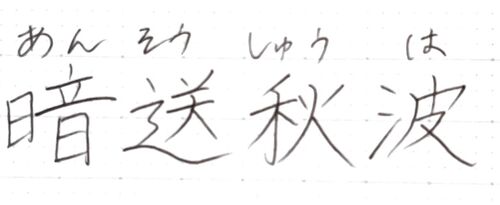 あんそうしゅうは
暗送秋波